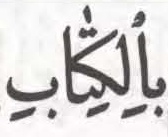 بِالْكِتٰابِ